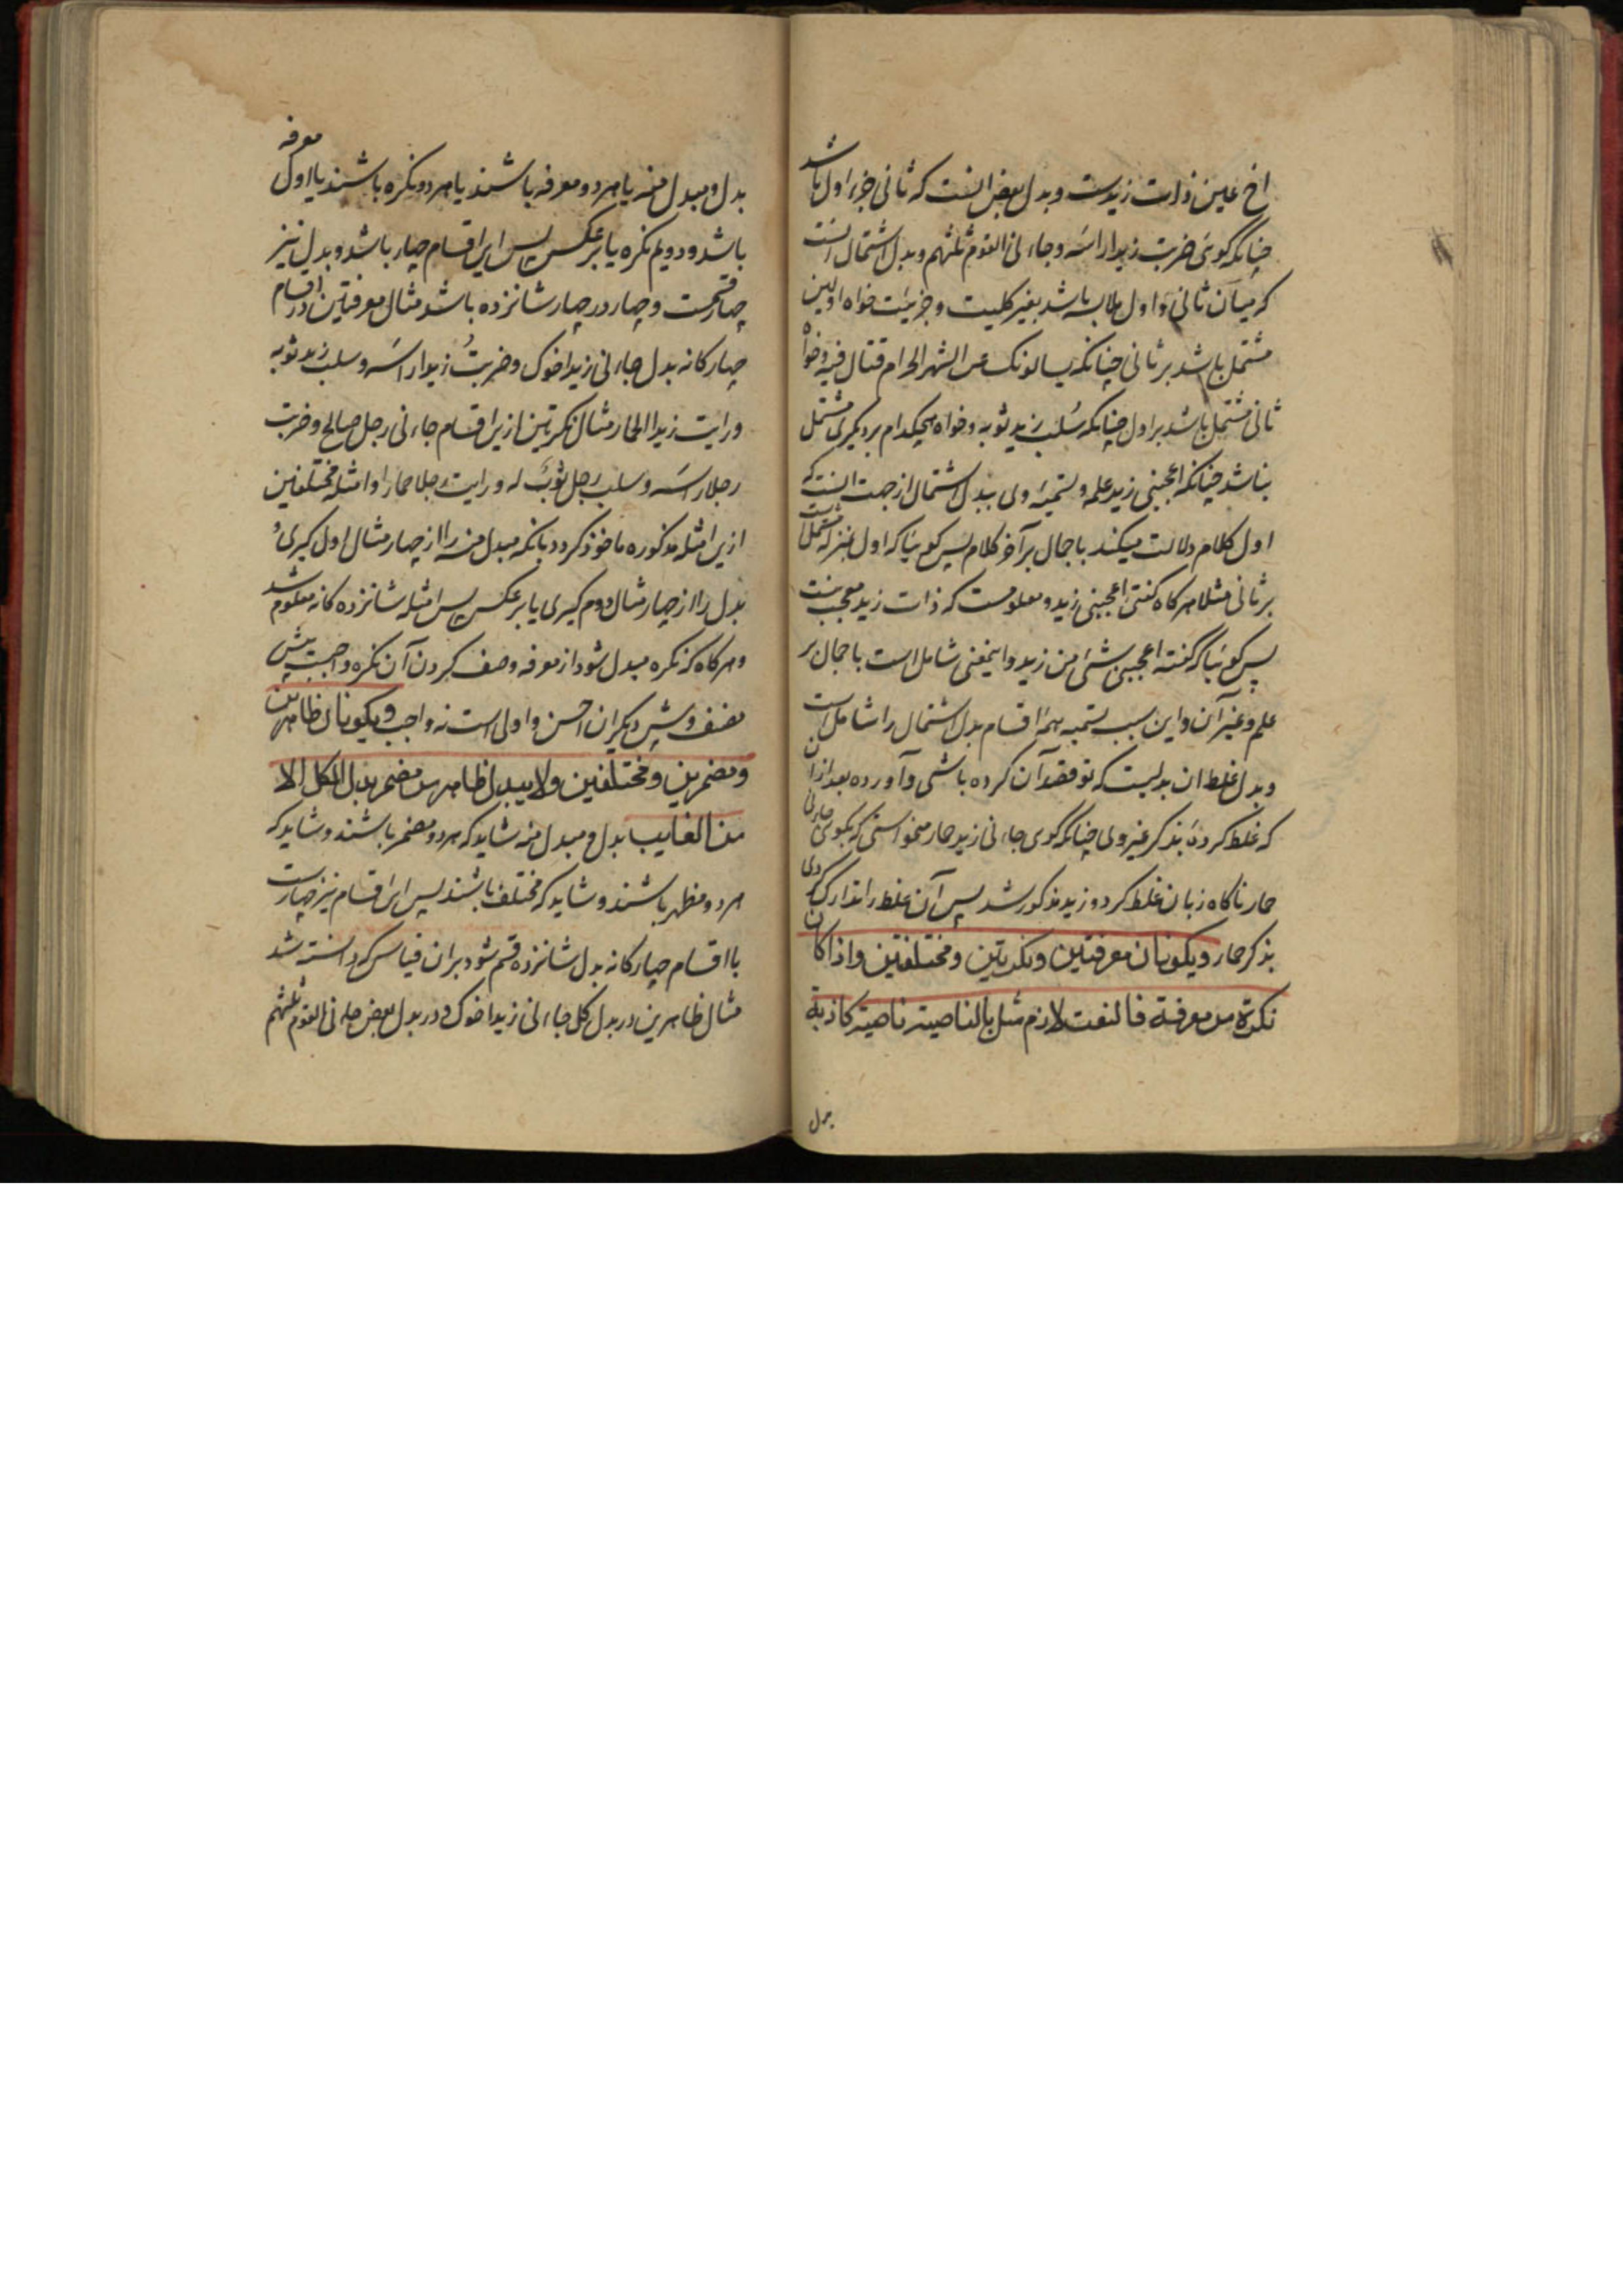 اخ عین ذات زیدست و بدل بعض انست که ثانی جزء اول باشد
چنانکه گوئی ضربت زیدا راسه و جاءنی القوم ثلثهم و بدل اشتمال انست
که میان ثانی و اول ملابسه باشد بغیر کلیت و جزئیت خواه اولین
مشتمل باشد بر ثانی چنانکه یسالونک عن الشهر الحرام قتال فیه و خواه
ثانی مشتمل باشد بر اول چنانکه سُلب زید ثوبه و خواه هیچکدام بر دیگری مشتمل
نباشد چنانکه اعجبنی زید علمه و تسمیه وی ببدل اشتمال از جهت انست که
اول کلام دلالت میکند باجمال بر آخر کلام پس گوییا که اول بمنزله مشتمل است
بر ثانی مثلا هرکاه گفتی اعجبنی زید و معلومست که ذات زید معجب نیست
پس گوییا که گفته اعجبنی شئ من زید و اینمعنی شامل است باجمال بر
علم و غیر آن و این سبب تسمیه همه اقسام بدل اشتمال را شامل است
و بدل غلط ان بدلیست که تو قصد آن کرده باشی و آورده بعد از ان
که غلط کردهٔ بذکر غیر وی چنانکه گوی جاءنی زید حمار میخواستی که بگوی جاءنی
حمار ناکاه زبان غلط کرد و زید مذکور شد پس آن غلط را تدارک کردی
بذکر حمار ویکونان معرفتین ونکرتین ومختلفتین واذا کان
نکرة من معرفة فالنعت لازم مثل بالناصیة ناصیة کاذبة
بدل
بدل و مبدل منه یا هردو معرفه باشند یا هردو نکره باشند یا اول معرفه
باشد و دویم نکره یا برعکس پس این اقسام چهار باشد و بدل نیز
چهار قسمت و چهار در چهار شانزده باشد مثال معرفتین در اقسام
چهارکانه بدل جاءنی زید اخوک و ضربتُ زیدا راسَه و سلب زید ثوبه
و رایت زیدا الحمار مثال نکرتین ازین اقسام جاءنی رجل صالح و ضربت
رجلا راسَه و سلب رجل ثوبٌ له و رایت رجلا حمارا و امثله مختلفین
ازین امثله مذکوره ماخوذ کردد بانکه مبدل منه را از چهار مثال اول کیری و
بدل را از چهار مثال دوم کیری یا برعکس پس امثله شانزده کانه معلوم شد
و هرکاه که نکره مبدل شود از معرفه وصف کردن آن نکره واجبست پیش
مصنف و پیش دیکران احسن و اولی است نه واجب ویکونان ظاهرین
ومضمرین ومختلفین ولا یبدل ظاهر من مضمر بدل الکل الا
من الغایب بدل و مبدل منه شاید که هردو مضمر باشند و شاید که
هردو مظهر باشند و شاید که مختلف باشند پس این اقسام نیز چهارست
با اقسام چهارکانه بدل شانزده قسم شود بران قیاس که دانسته شد
مثال ظاهرین در بدل کل جاءنی زید اخوک و در بدل بعض جاءنی القوم ثلثهم